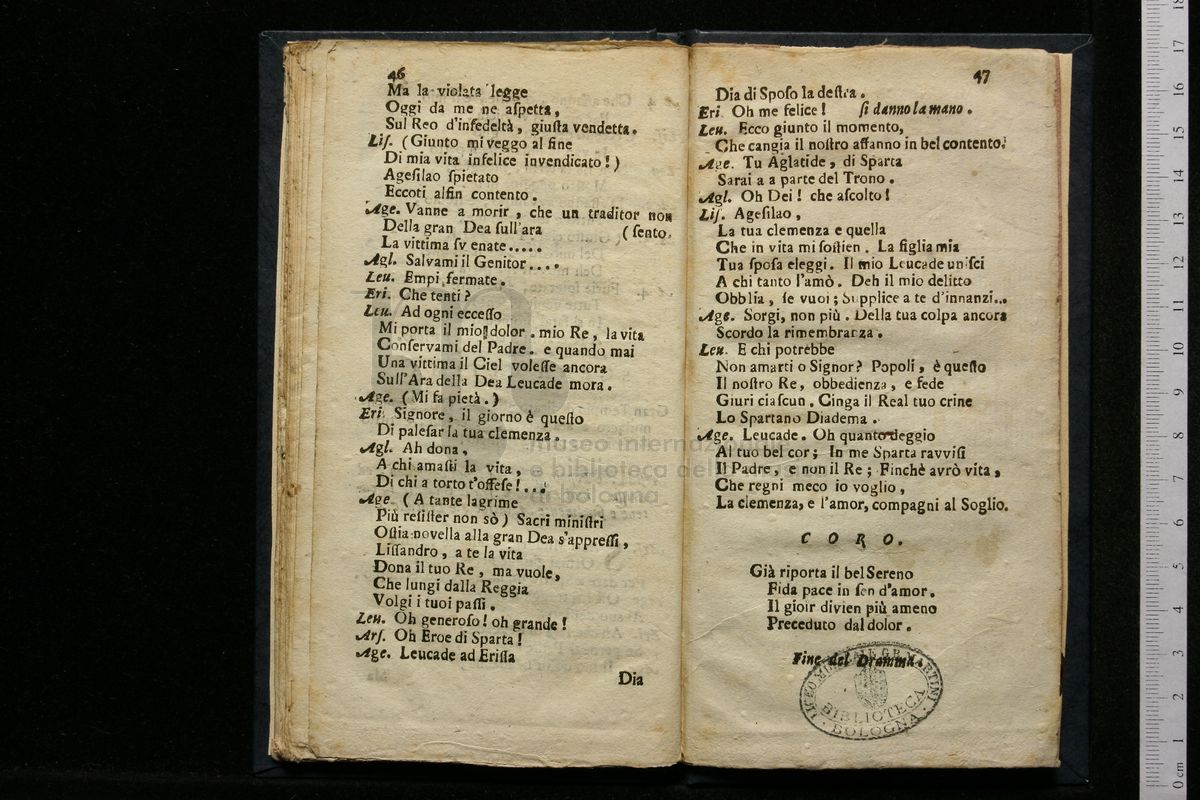 46
Ma la violata legge
Oggi da me ne aſpetta,
Sul Reo d'infedeltà, giuſta vendetta.
Liſ. (Giunto mi veggo al fine
Di mia vita infelice invendicato!)
Ageſilao ſpietato
Eccoti alfin contento.
Age. Vanne a morir, che un traditor non
Della gran Dea ſull'ara (ſento.
La vittima ſv enate.....
Agl. Salvami il Genitor....
Leu. Empi fermate.
Eri. Che tenti?
Leu. Ad ogni ecceſſo
Mi porta il mio dolor. mio Re, la vita
Conſervami del Padre. e quando mai
Una vittima il Ciel voleſſe ancora
Sull'Ara della Dea Leucade mora.
Age. (Mi fa pietà.)
Eri. Signore, il giorno è queſto
Di paleſar la tua clemenza.
Agl. Ah dona,
A chi amaſti la vita,
Di chi a torto t'offeſe!...
Age. (A tante lagrime
Più reſiſter non sò) Sacri miniſtri
Oſtia novella alla gran Dea s'appreſſi,
Liſſandro, a te la vita
Dona il tuo Re, ma vuole,
Che lungi dalla Reggia
Volgi i tuoi paſſi.
Leu. Oh generoſo! oh grande!
Arſ. Oh Eroe di Sparta!
Age. Leucade ad Eriſſa
Dia
47
Dia di Spoſo la deſtra.
Eri. Oh me felice! ſi danno la mano.
Leu. Ecco giunto il momento,
Che cangia il noſtro affanno in bel contento.
Age. Tu Aglatide, di Sparta
Sarai a a parte del Trono.
Agl. Oh Dei! che aſcolto!
Liſ. Ageſilao,
La tua clemenza e quella
Che in vita mi ſoſtien. La figlia mia
Tua ſpoſa eleggi. Il mio Leucade uniſci
A chi tanto l'amò. Deh il mio delitto
Obblia, ſe vuoi; Supplice a te d'innanzi...
Age. Sorgi, non più. Della tua colpa ancora
Scordo la rimembranza.
Leu. E chi potrebbe
Non amarti o Signor? Popoli, è queſto
Il noſtro Re, obbedienza, e fede
Giuri ciaſcun. Cinga il Real tuo crine
Lo Spartano Diadema.
Age. Leucade. Oh quanto deggio
Al tuo bel cor; In me Sparta ravviſi
Il Padre, e non il Re; Finchè avrò vita,
Che regni meco io voglio,
La clemenza, e l'amor, compagni al Soglio.
CORO.
Già riporta il bel Sereno
Fida pace in ſen d'amor.
Il gioir divien più ameno
Preceduto dal dolor.
Fine del Dramma.
BIBLIOTECA
BOLOGNA
museo internazionale
e biblioteca della
di bologna
0 cm 1 2 3 4 5 6 7 8 9 10 11 12 13 14 15 16 17 18